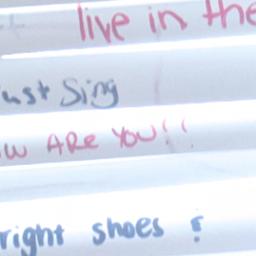 live in the
ust Sing
w ARE YOU!!
right shoes